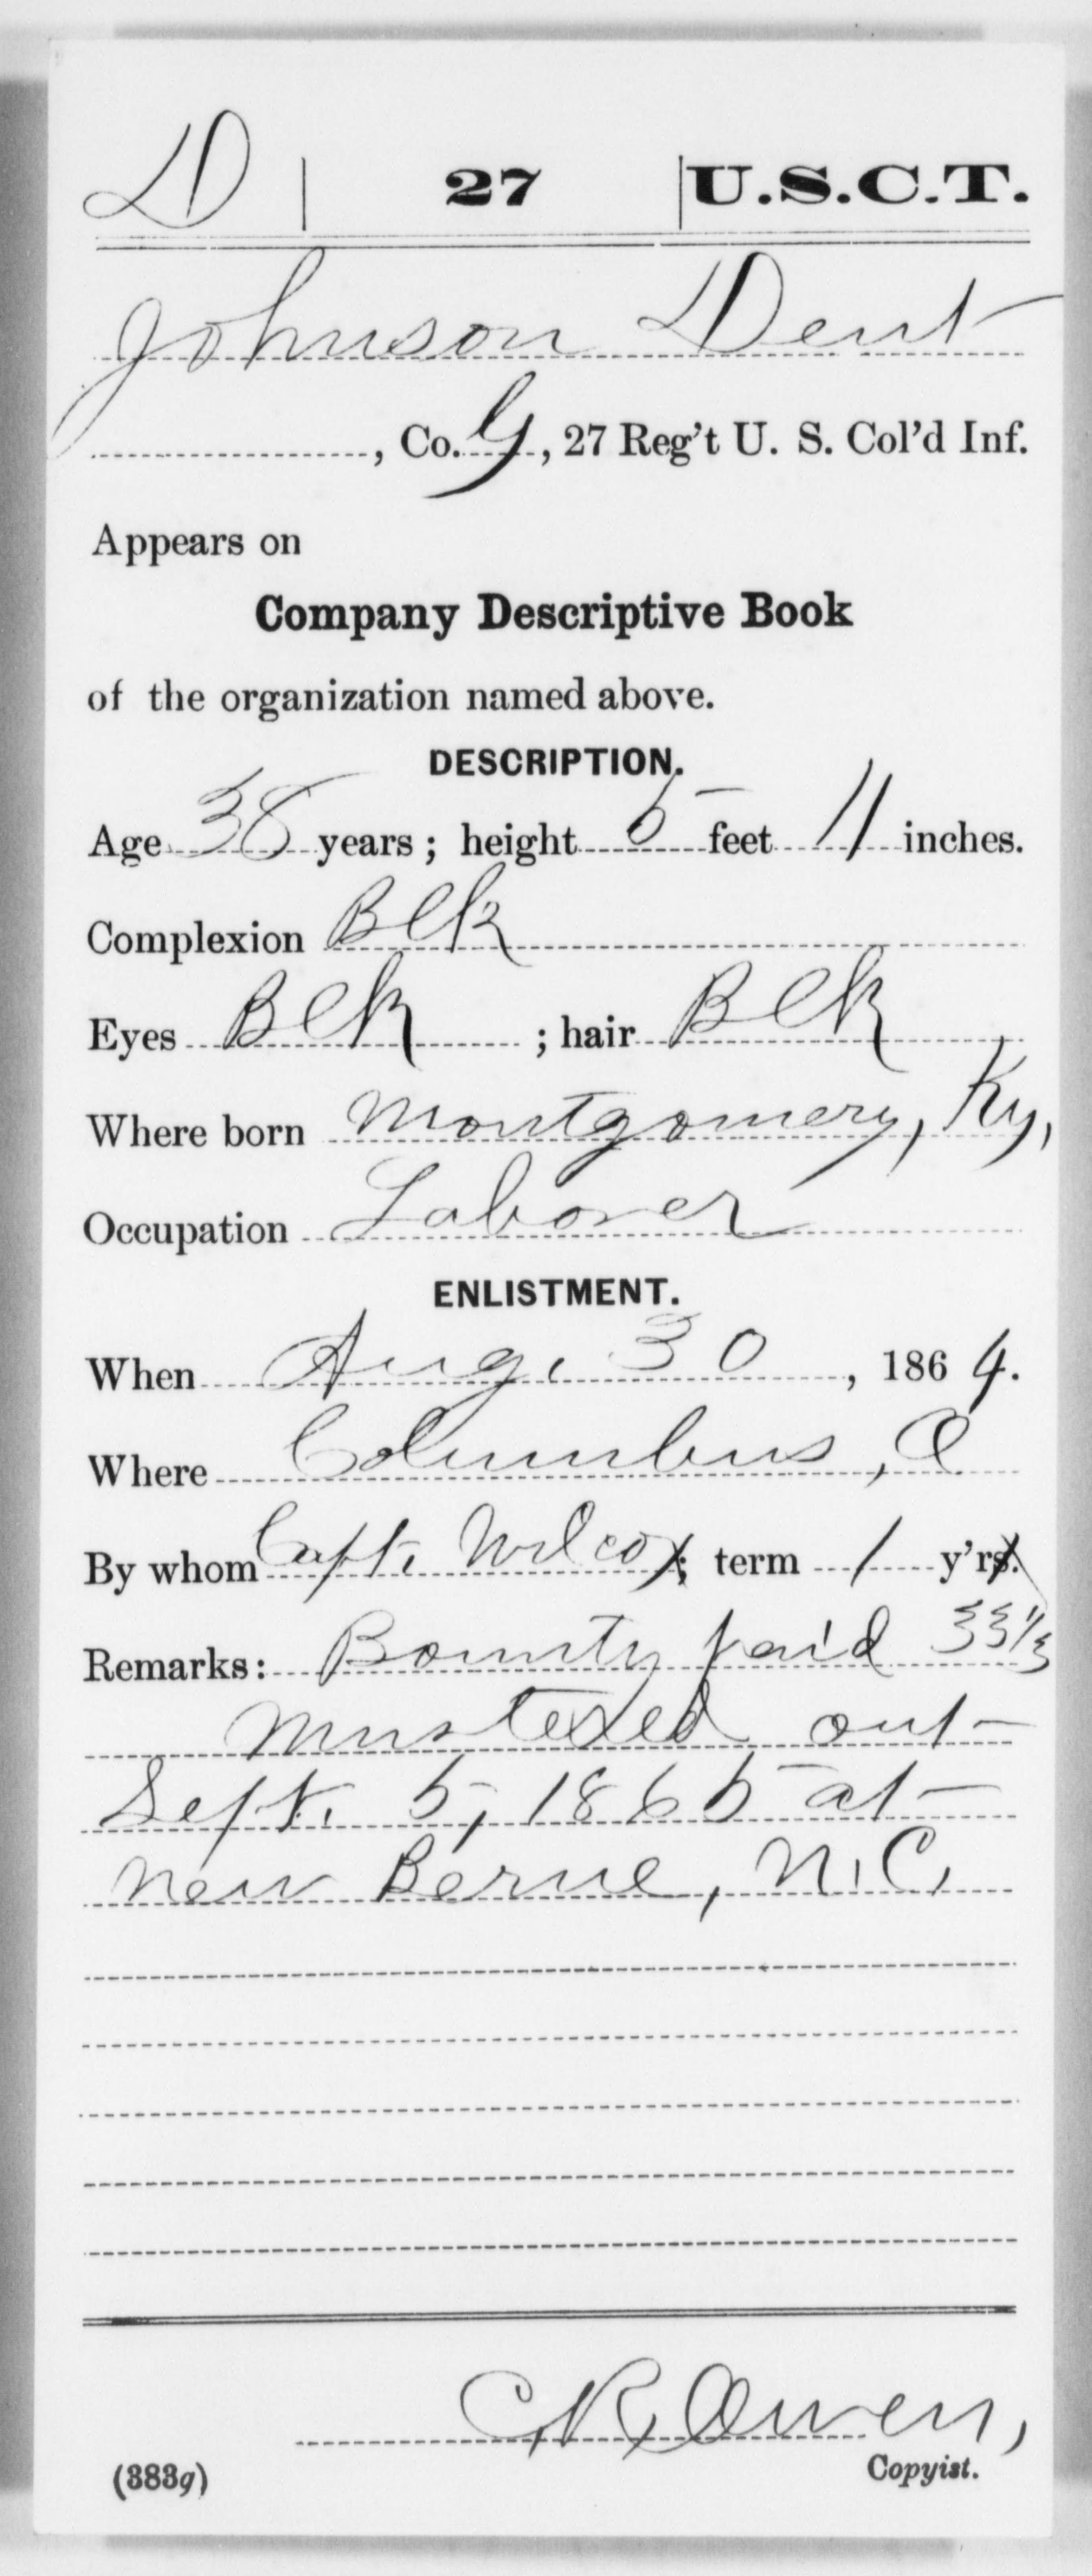 D | 27 | U.S.C.T.
Johnson Dent
, Co. G, 27 Reg't U. S. Col'd Inf.
Appears on
Company Descriptive Book
of the organization named above.
DESCRIPTION.
Age 38 years; height 5 feet 11 inches.
Complexion Blk
Eyes Blk ; hair Blk
Where born Montgomery, Ky,
Occupation Laborer
ENLISTMENT.
When Aug. 30, 1864.
Where Columbus, O
By whom Capt. Wilcox; term 1 y'rs.
Remarks: Bounty paid 33 1/3
Mustered out
Sept. 5, 1865 at
New Berne, N.C.
C. R. Owen,
(383g) Copyist.